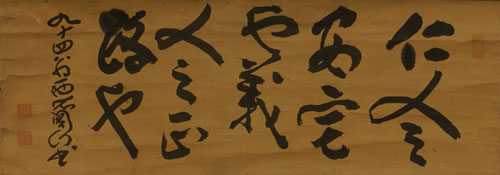 仁人之
安宅
也義
人之正
路也
九十四翁書